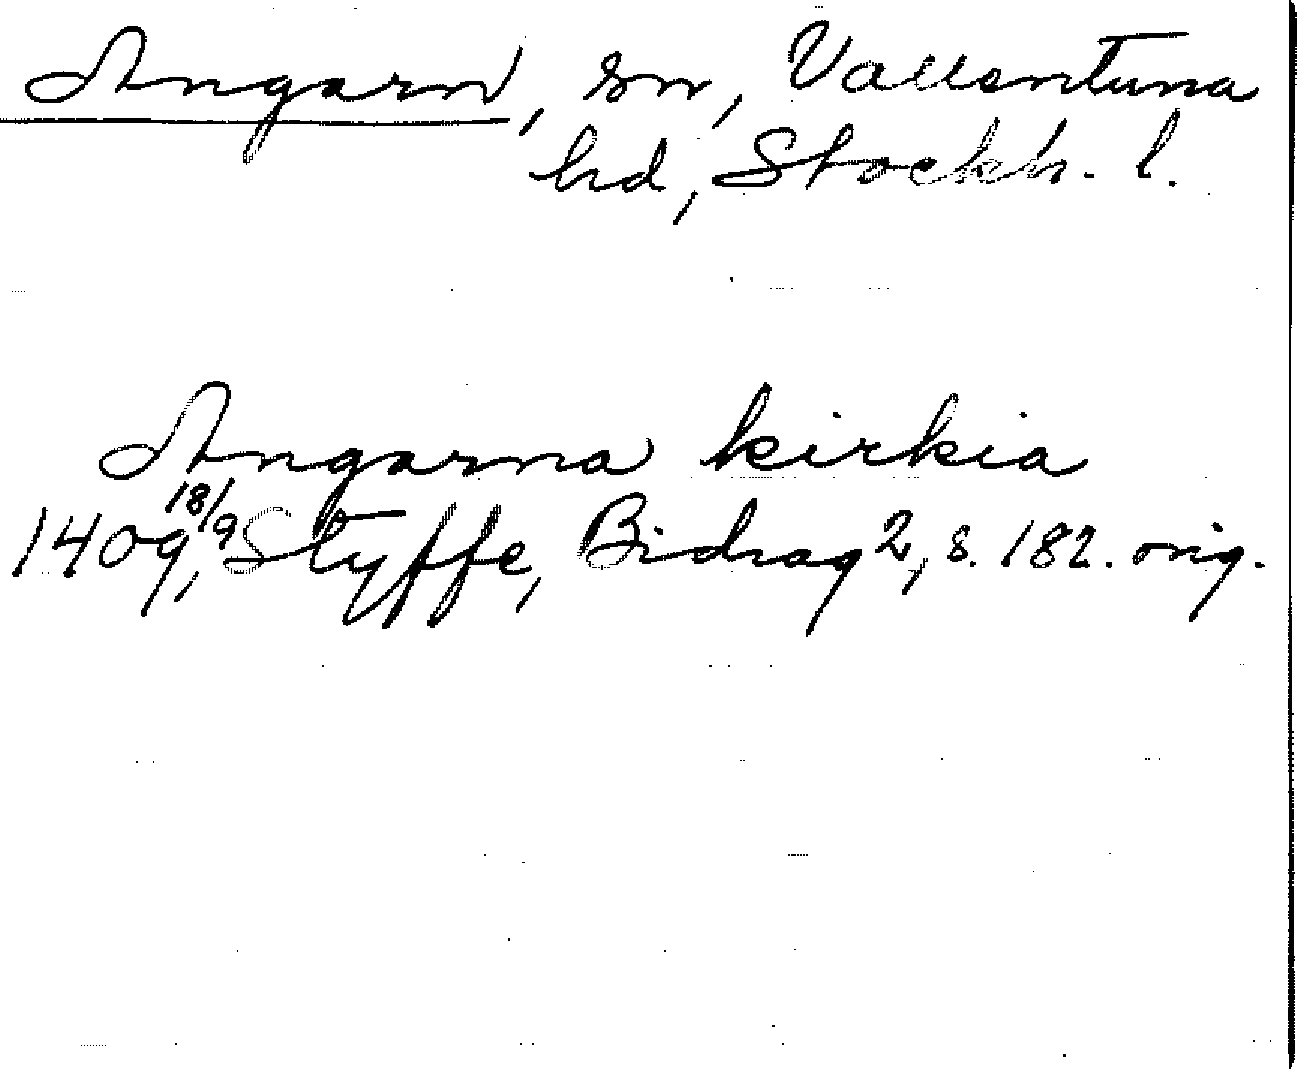 Angarn, sn, Vallentuna
hd, Stockh. l.
Angarna kirkia
1409 18/9, Styffe, Bidrag 2, s. 182. orig.